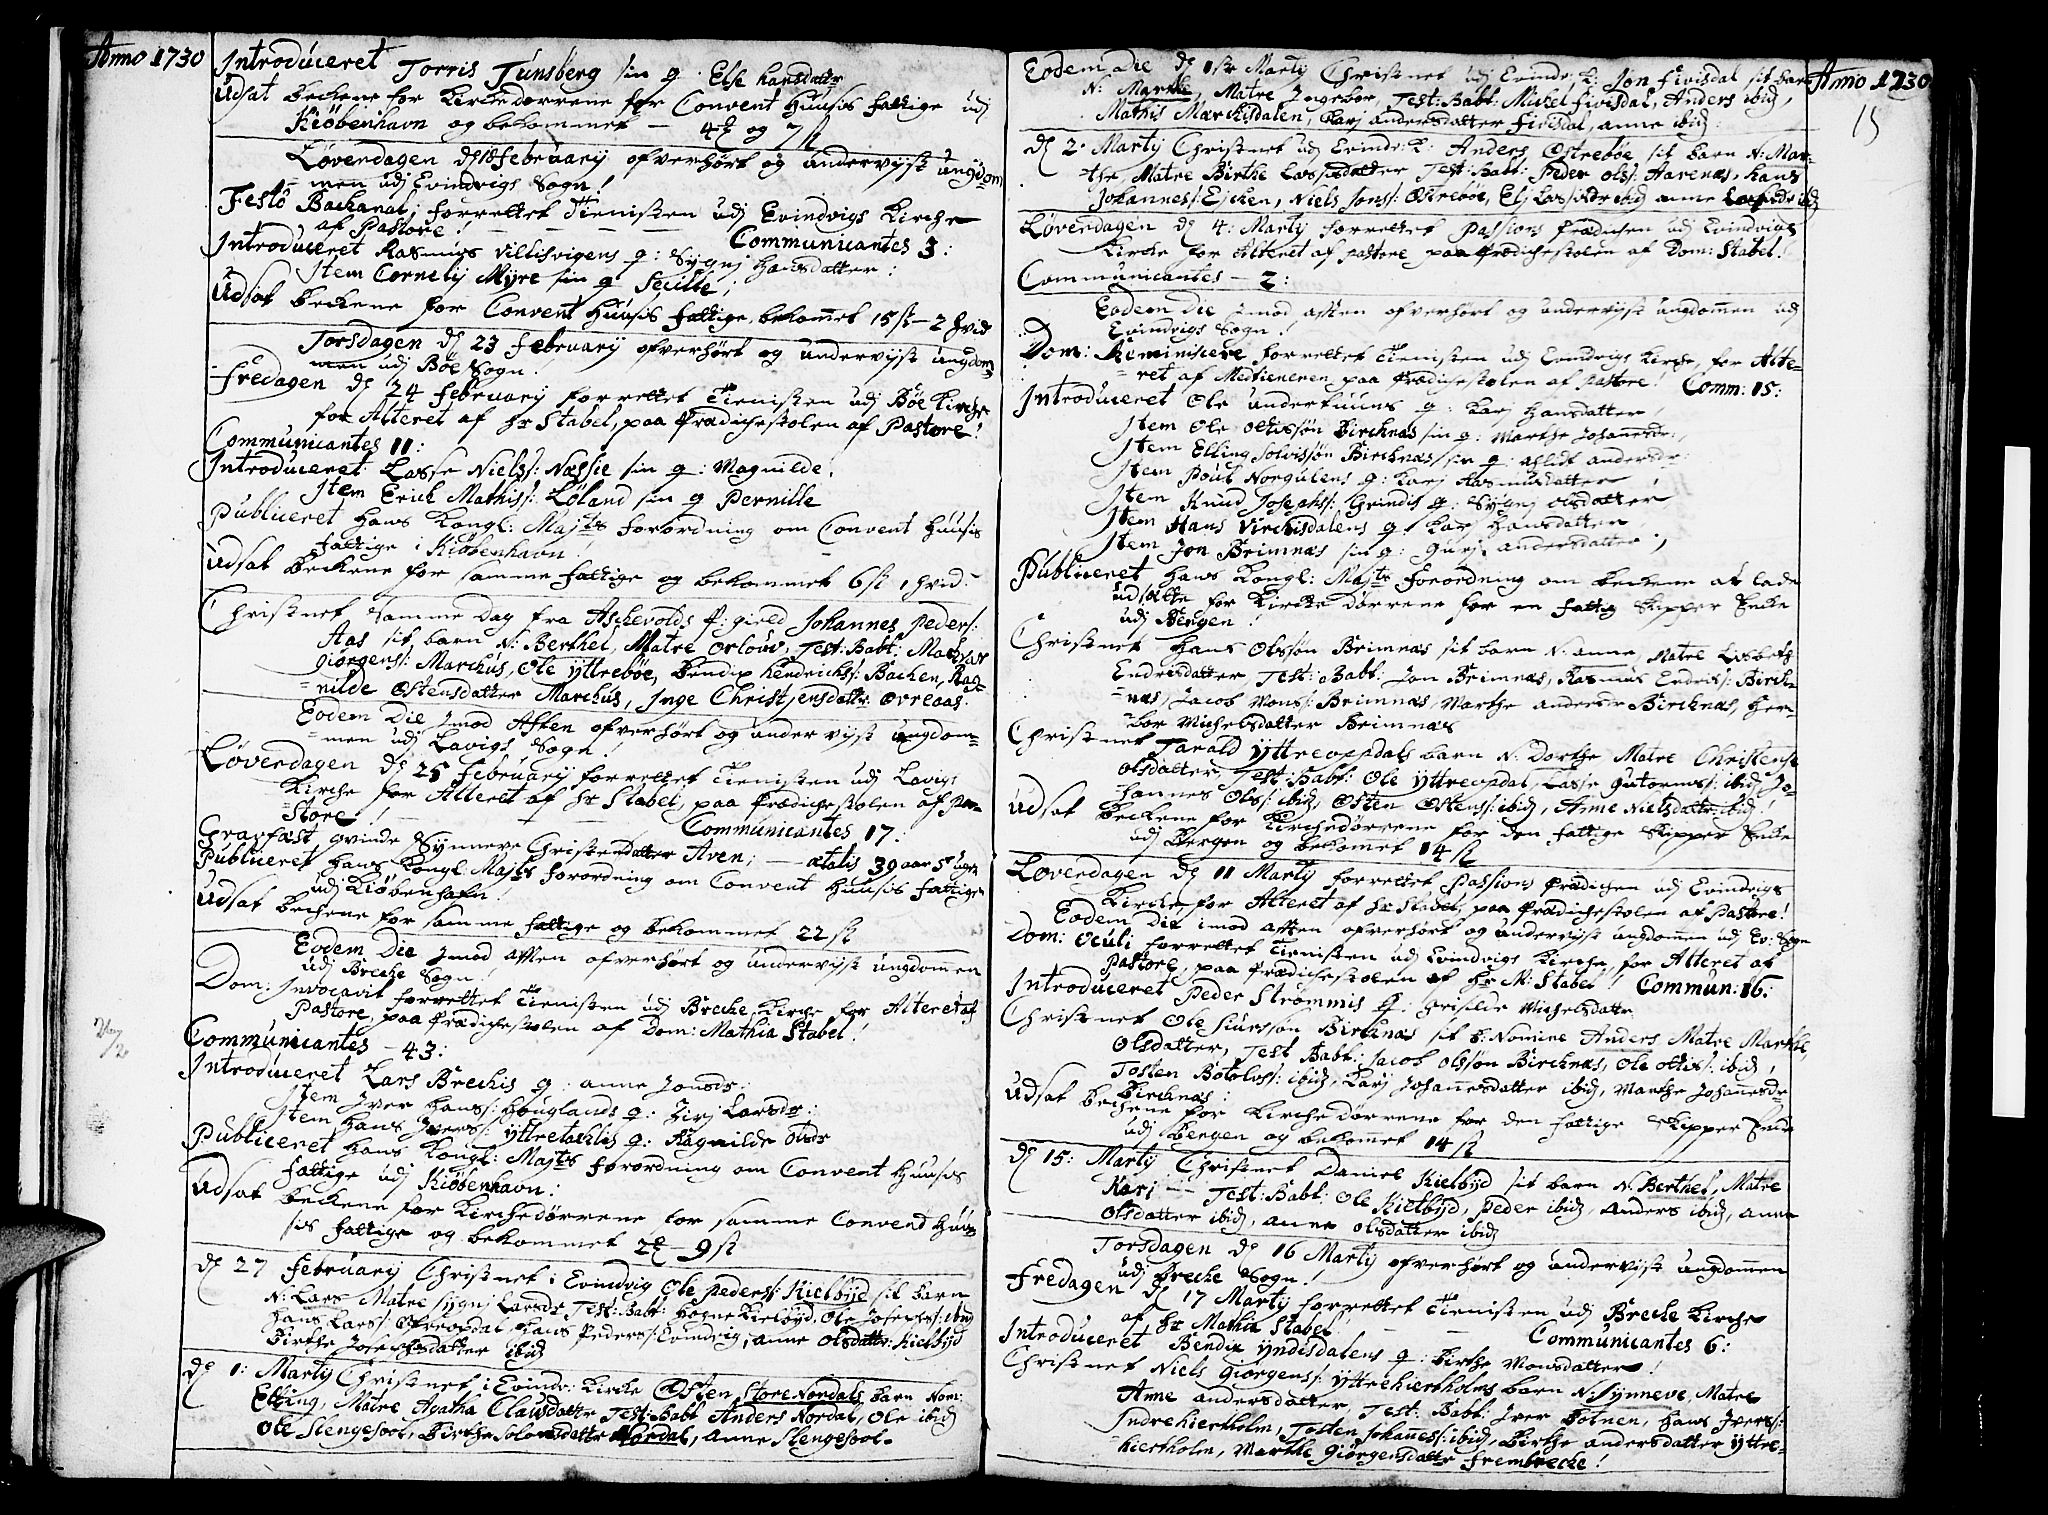 Anno 1730
Introduceret Torris Tunsberg sin q. Else hansdatter
Udsat beckene for Kirckedørrene for Convent Huusis fattige udj
Kiøbenhavn og bekommet — 4 og 7 ß
Løverdagen d 18 February ofverhørt og undervijst ungdom
men udj Evindvigs Sogn!
Festo Bachanal: forrettet Tienisten udj Evindvigs Kirche
af Pastore! Communicantes 3:
Introduceret Rasmus Villisvigens q: Sygnj hansdatter:
Item Cornelij Myre sin q Sicille;
Udsat beckene for Convent Huusis fattige, bekommet 15 ß — 2 hvid
Torsdagen d 23 February ofverhørt og undervijst ungdom
men udj Bøe Sogn.
Fredagen d 24 February forrettet Tienisten udj Bøe Kirche
for Alteret af hr Stabel, paa Prædichestolen af Pastore!
Communicantes 11:
Introduceret Lasse Niels: Næssie sin q: Magnilde.
Item Erick Mathis: Løland sin q Pernille
Publiceret hans Kongl: Majts forordning om Convent Huusis
fattige i Kiøbenhavn!
Udsat beckene for samme fattige og bekommet 6 ß 1 hvid
Christnet samme dag fra Aschevolds P: gield Johannes Peders:
Aas sit barn N: Berthel, Matre Orlouv, Test: Babt: Mathias
Giørgens: Marchus, Ole Yttrebøe, Bendix Hendrichs: Bachen, Rag-
nilde Østensdatter Marchus, Inge Christensdattr Øvreaas.
Eodem Die Imod Aften ofverhørt og undervijst ungdom-
men udj Lavigs Sogn!
Løverdagen d 25 February forrettet Tienisten udj Lavigs
Kirche for Alteret af hr Stabel, paa Prædichestolen af Pa-
store! Communicantes 17:
Gravfæst qvinde Synneve Christensdatter Aven; — ætatis 39 aar 5 uger
Publiceret hans Kongl Majts forordning om Convent Huusis fattige
udj Kiøbenhafn!
Udsat bechene for samme fattige og bekommet 22 ß
Eodem Die Imod Aften ofverhørt og undervijst ungdommen
udj Breche Sogn!
Dom: Invocavit forrettet Tienisten udj Breche Kirche for Alteret af
Pastore, paa Prædichestolen af Dom: Mathia Stabel!
Communicantes — 43:
Introduceret Lars Brechis q: anne Jonsdr:
Item Iver hans: Houglands q: Larsdr:
Item hans Ivers: Yttretachlis q: Ragnilde Olsdr
Publiceret hans Kongl: Majts forordning om Convent Huusis
fattige udj Kiøbenhavn:
Udsat beckene for Kirchedørrene for samme Convent Huu-
sis fattige og bekommet 2 — 9 ß
d 27 February Christnet i Evindvig Ole Peders: Kielbyd sit barn
N: Lars Matre sygnj Larsdr, Test: Babt: Hogne Kielbyd, Ole Josephs: ibid
hans Lars: Østreopdal hans Peders: Evindvig, anne Olsdattr: Kielbyd
Birthe Josephsdatter ibid
d 1: Martij Christnet i Evindr: Kirche Østen Store Nordals barn Nom:
Elling, Matre Agatha Clausdattr Test: Babt Anders Nordal, Ole ibid
Ole Slengesool, Birthe Solomsdattr Nordal, Anne Slengesool.
Anno 1730
15
Eodem Die d 1ste Martij Christnet udj Evindr: K: Jon Fivisdal sit barn
N: Marthe, Matre Ingebor, Test: Babt: Mickel fivisdal, Anders ibid,
Mathis Mærchisdalen, Karj Andersdatter fivisdal, anne ibid:
d 2. Martij Christnet udj Evindr: K: Anders Østrebøe sit barn N: Mar-
the, Matre Birthe Larsdatter Test: Babt: Peder Ols: Aarenæs, hans
Johannes: Eichen, Niels Jons: Østrebøe, Elj Larsdr ibid anne Larsdr ibid
Løverdagen d 4. Martij forrettet Passions Prædichen udj Evindvigs
Kirche for Alteret af Pastore paa Prædichestolen af Dom: Stabel!
Communicantes — 2:
Eodem Die Imod aften ofverhørt og undervijst ungdommen udj
Evindvigs Sogn!
Dom: Reminiscere forrettet Tienisten udj Evindvigs Kirche, for Alte-
ret af Medtieneren paa Prædichestolen af Pastore! Comm: 15:
Introduceret Ole Underhuuns q: Karj Hansdatter,
Item Ole Ottissøn Bircknæs sin q: Marthe Johannesdr:,
Item Elling Solvissøn Bircknæs sin q: Andersdr:
Item Poul Norgulens q: Karj Rasmusdatter!
Item Knud Josephs: Grindis q: Sygnj Olsdatter!
Item Hans Virchisdalens q: Karj Hansdatter
Item Jon Brimnæs sin q: Gurj Andersdatter.,
Publiceret hans Kongl: Majts forordning om beckene at lade
udsætte for Kircke dørrene for en fattig Skipper Encke
udj Bergen!
Christnet Hans Olssøn Brimnæs sit barn N: anne, Matre Lisbeth
Endresdatter, Test: Babt: Jon Brimnæs, Rasmus Endris: Birck-
næs, Jacob Mons: Brimnæs, Marthe andersdr Bircknæs, Her-
bor Michelsdatter Brimnæs
Christnet Tarald Yttreoppdals barn N: Dorthe Matre Christense
Olsdatter, Test: Babt: Ole Yttreopdal, Lasse Gutorms: ibid, Jo-
hannes Ols: ibid, Østen Østens: ibid, Anne Nielsdattr: ibid!
Udsat beckene for Kirchedørrene for den fattige Skipper Encke
udj Bergen og bekomet 14 ß
Løverdagen d 11 Martij forrettet Passions Prædichen udj Evindvigs
Kirche for Alteret af hr Stabel, paa Prædichestolen af Pastore!
Eodem Die imod aften ofverhørt og undervijst ungdommen udj Ev: Sogn
Dom: Oculi forrettet Tienisten udj Evindvigs Kirche, for Alteret af
Pastore, paa Prædichestolen af hr M: Stabel! Commun: 16:
Introduceret Peder Strømmis q: Michelsdattr
Christnet Ole Siurssøn Bircknæs sit b: Nomine Anders Matre Marthe,
Olsdatter, Test Babt: Jacob Olssøn Bircknæs, Ole Ottis: ibid,
Tosten Botelvs: ibid, Karj Johannesdatter ibid, Marthe Johannesdr
Bircknæs:
Udsat bechene for Kirchedørrene for den fattige Skipper Encke
udj Bergen og bekomet 14 ß
d 15: Martij Christnet Daniel Kielbyd sit barn N. Berthel, Matre
Karj — Test: Babt: Ole Kielbyd, Peder ibid, Anders ibid, anne
Olsdatter ibid, anne Olsdatter ibid
Torsdagen d 16 Martij ofverhørt og undervijst ungdommen
udj Breche Sogn!
Fredagen d 17 Martij forrettet Tienisten udj Breche Kirche
af hr Mathia Stabel! Communicantes 6:
Introduceret Bendix Yndisdalens q: Birthe Monsdatter!
Christnet Niels Giørgens: Yttrehiertholms barn N: Synneve, Matre
Anne andersdatter, Test: Babt: Iver Botnen, Hans Ivers:
Indrehiertholm, Tosten Johanes: ibid, Birthe andersdatter Yttre-
hiertholm, Marthe Giørgensdattr Frembreche!